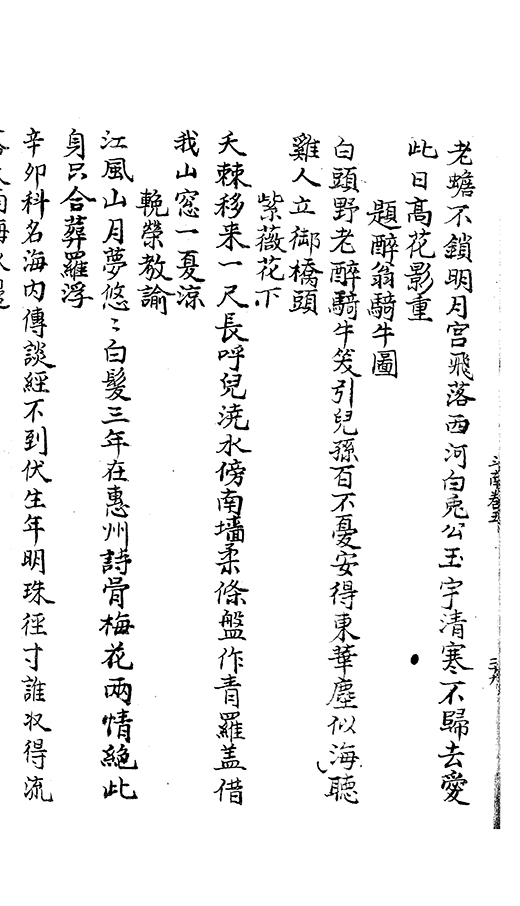 斗南卷五
三九
老蟾不鎖明月宮飛落西河白兎公玉宇清寒不歸去愛
此日高花影重
題醉翁騎牛圖
白頭野老醉騎牛笑引兒孫百不憂安得東華塵似海聽
雞人立御橋頭
紫薇花下
夭棘移来一尺長呼兒澆水傍南墻柔條盤作青羅盖借
我山窓一夏涼
輓榮教諭
江風山月夢悠〻白髮三年在惠州詩骨梅花兩情絶此
身只合葬羅浮
辛卯科名海内傳談經不到伏生年明珠徑寸誰收得流